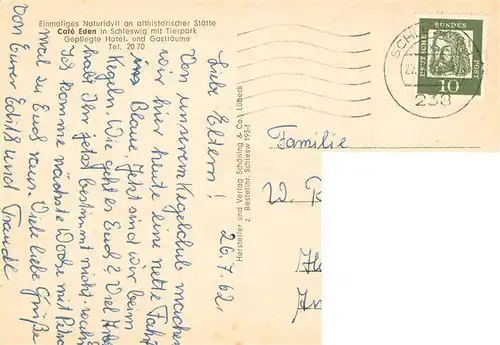 Einmaliges Naturidyll an althistorischer Stätte
Café Eden in Schleswig mit Tierpark
Gepflegte Hotel- und Gasträume
Tel. 20 70
26.7.62.
Liebe Eltern!
Von unserem Kegelclub machen
wir heute eine nette Fahrt
ins Blaue. Jetzt sind wir beim
Kegeln. Wie geht es Euch? Viel
habt Ihr jetzt bestimmt nicht.
Ich komme nächste Woche mit
mal zu Euch raus. Viele liebe Grüße
von Eurer Edith und Traudl.
Hersteller und Verlag Schöning & Co., Lübeck
Bestellnr. Schlesw 193
DEUTSCHE BUNDESPOST
10
SCH
238
Familie
W.